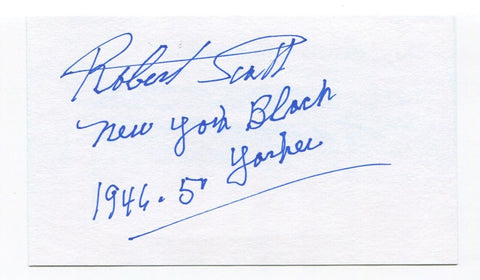 Robert Scott
New York Black
1946-50 Yankee